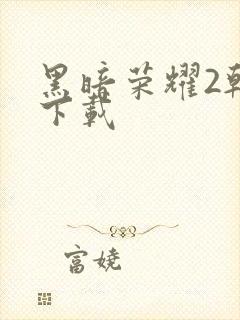 黑暗荣耀2韩
下载
富娆